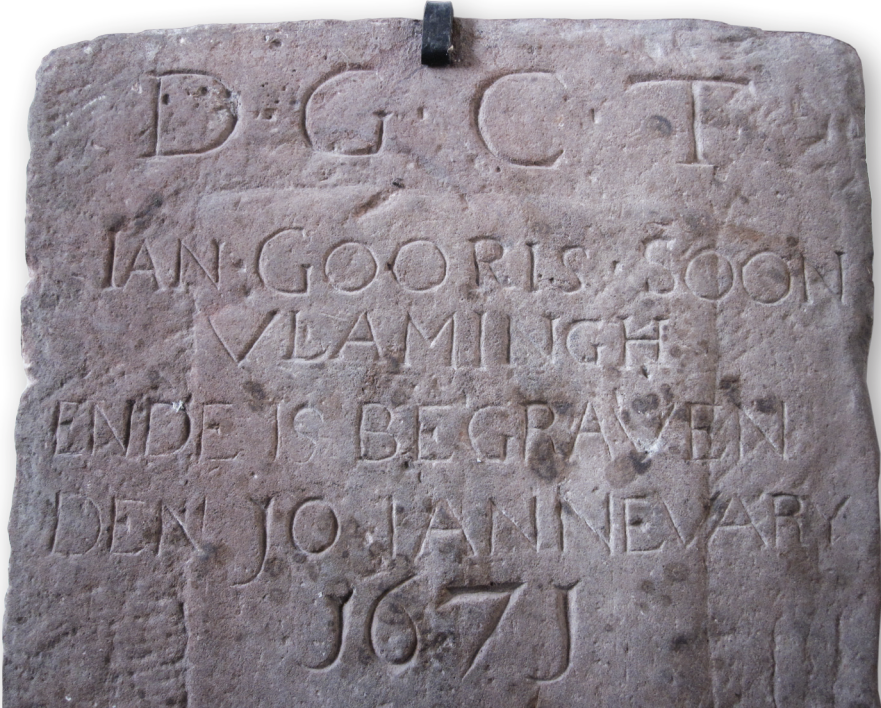 D·G·C·T
IAN·GOORIS·SOON
VLAMINGH
ENDE IS BEGRAVEN
DEN JO IANNEVARY
J67J